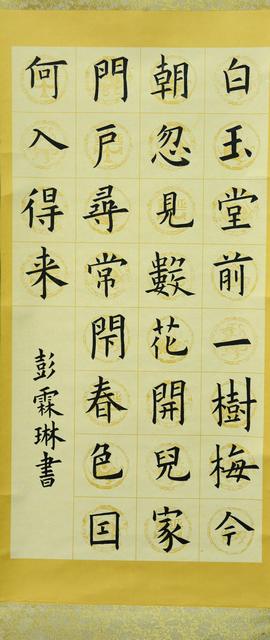 白玉堂前一樹梅今
朝忽見數花開兒家
門戶尋常閇春色囙
何入得来
彭霖琳書